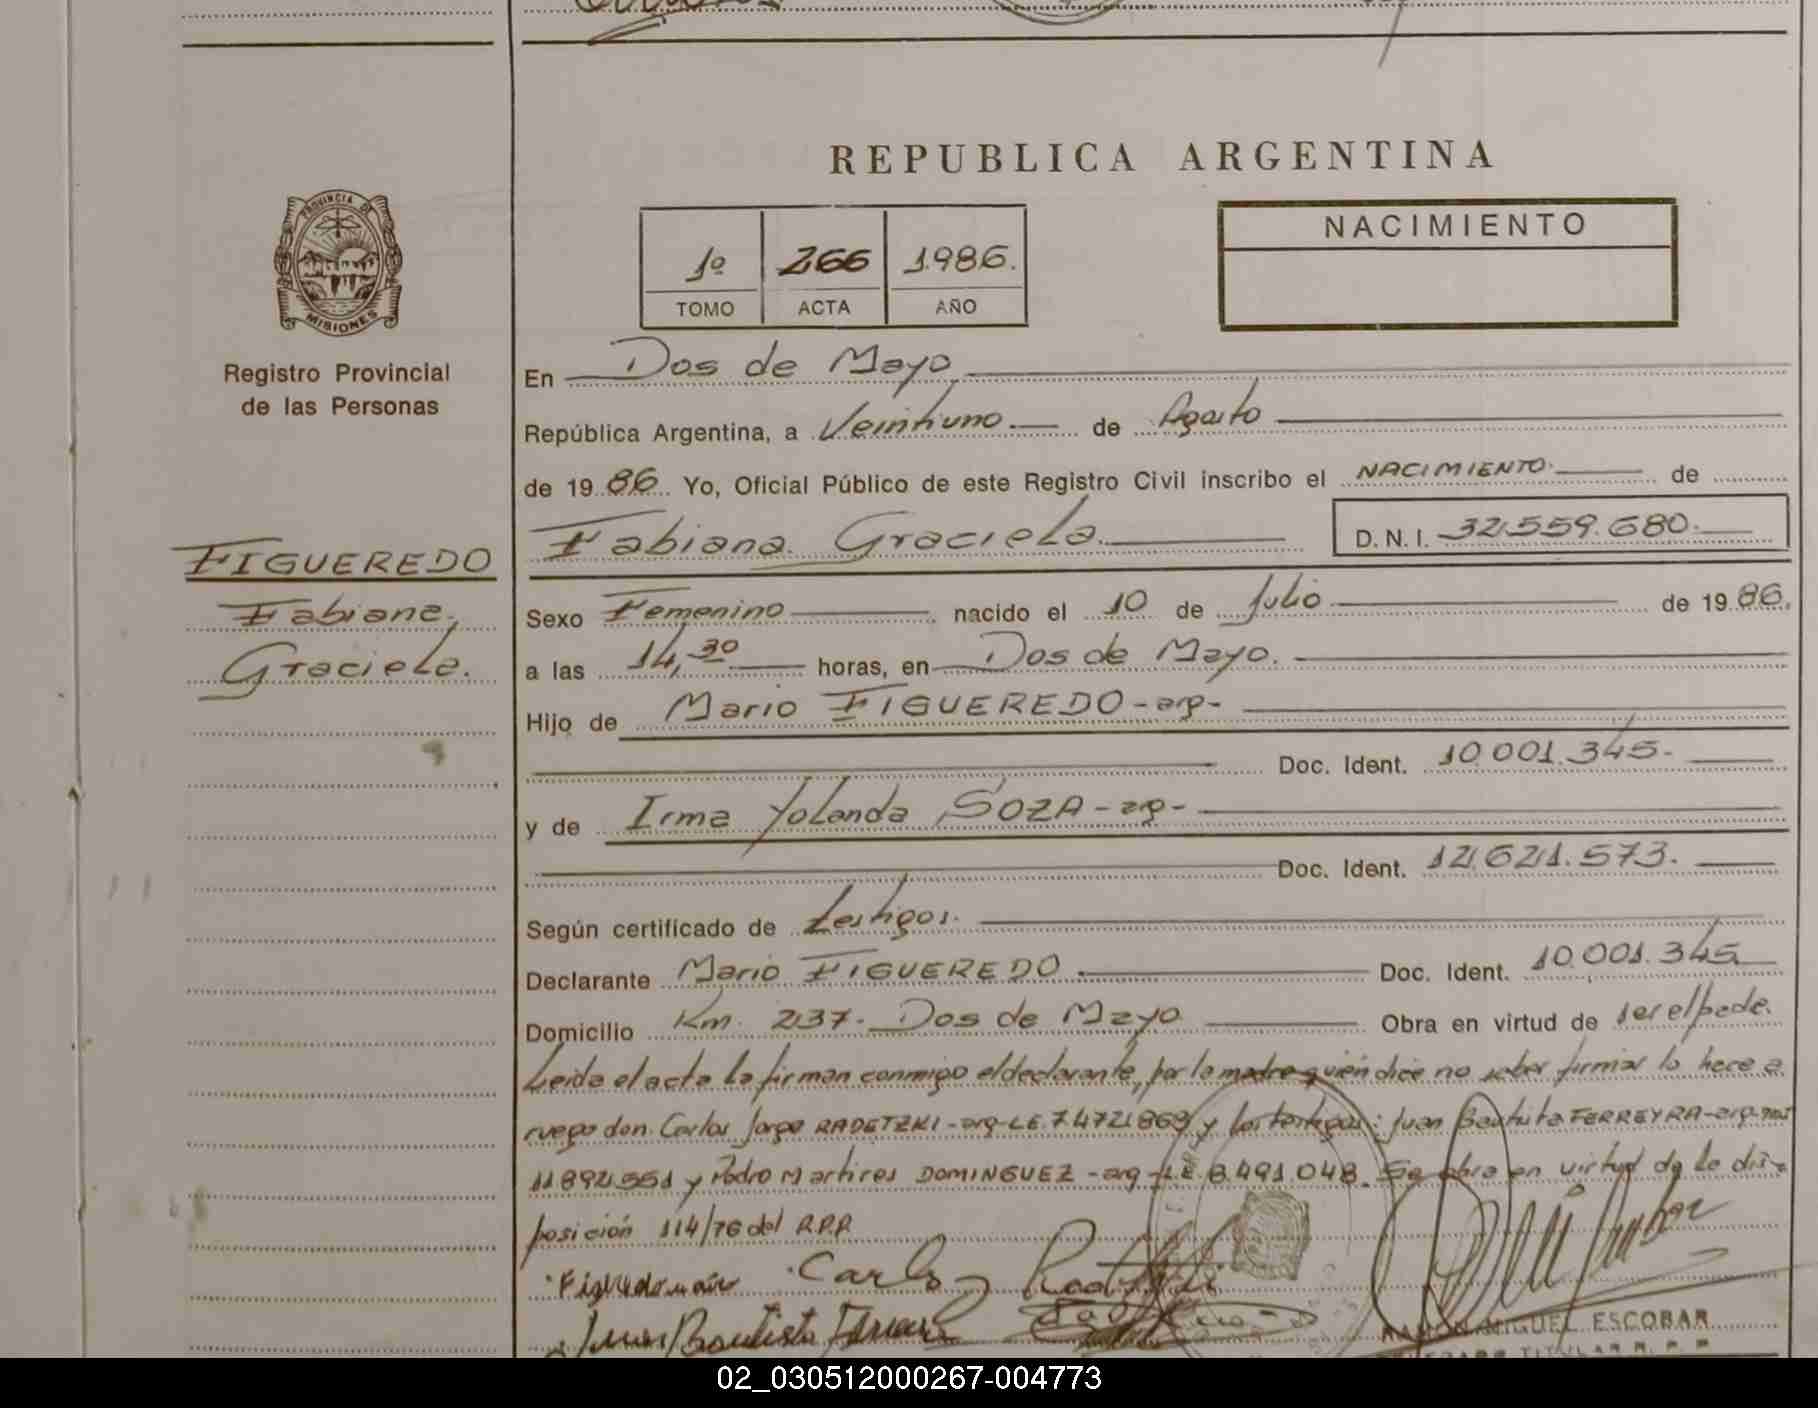 REPUBLICA ARGENTINA
PROVINCIA DE
MISIONES
Registro Provincial
de las Personas
1º 266 1986.
TOMO ACTA AÑO
NACIMIENTO
En Dos de Mayo
República Argentina, a Veintiuno de Agosto
de 1986 Yo, Oficial Público de este Registro Civil inscribo el NACIMIENTO de
Fabiana Graciela. D.N.I. 32.559.680.
FIGUEREDO
Fabiana
Graciela.
Sexo Femenino nacido el 10 de Julio de 1986.
a las 14,30 horas, en Dos de Mayo.
Hijo de Mario FIGUEREDO - arg-
Doc. Ident. 10.001.345.
y de Irma Yolanda SOZA - arg-
Doc. Ident. 12.621.573.
Según certificado de testigos.
Declarante Mario FIGUEREDO. Doc. Ident. 10.001.345
Domicilio Km. 237. Dos de Mayo Obra en virtud de ser el padre.
Leida el acta la firman conmigo el declarante, por la madre quién dice no saber firmar lo hace a
ruego don Carlos Jorge RADETZKI - arg-LE.7472.869 y los testigos: Juan Bautista FERREYRA-arg-
11892.551 y Pedro Martires DOMINGUEZ - arg-LE.8.491.048. Se obra en virtud de la dis-
posición 114/76 del R.P.P.
Figueredo mario Carlos
Juan Bautista Ferreyra
RAMON MIGUEL ESCOBAR
02_030512000267-004773